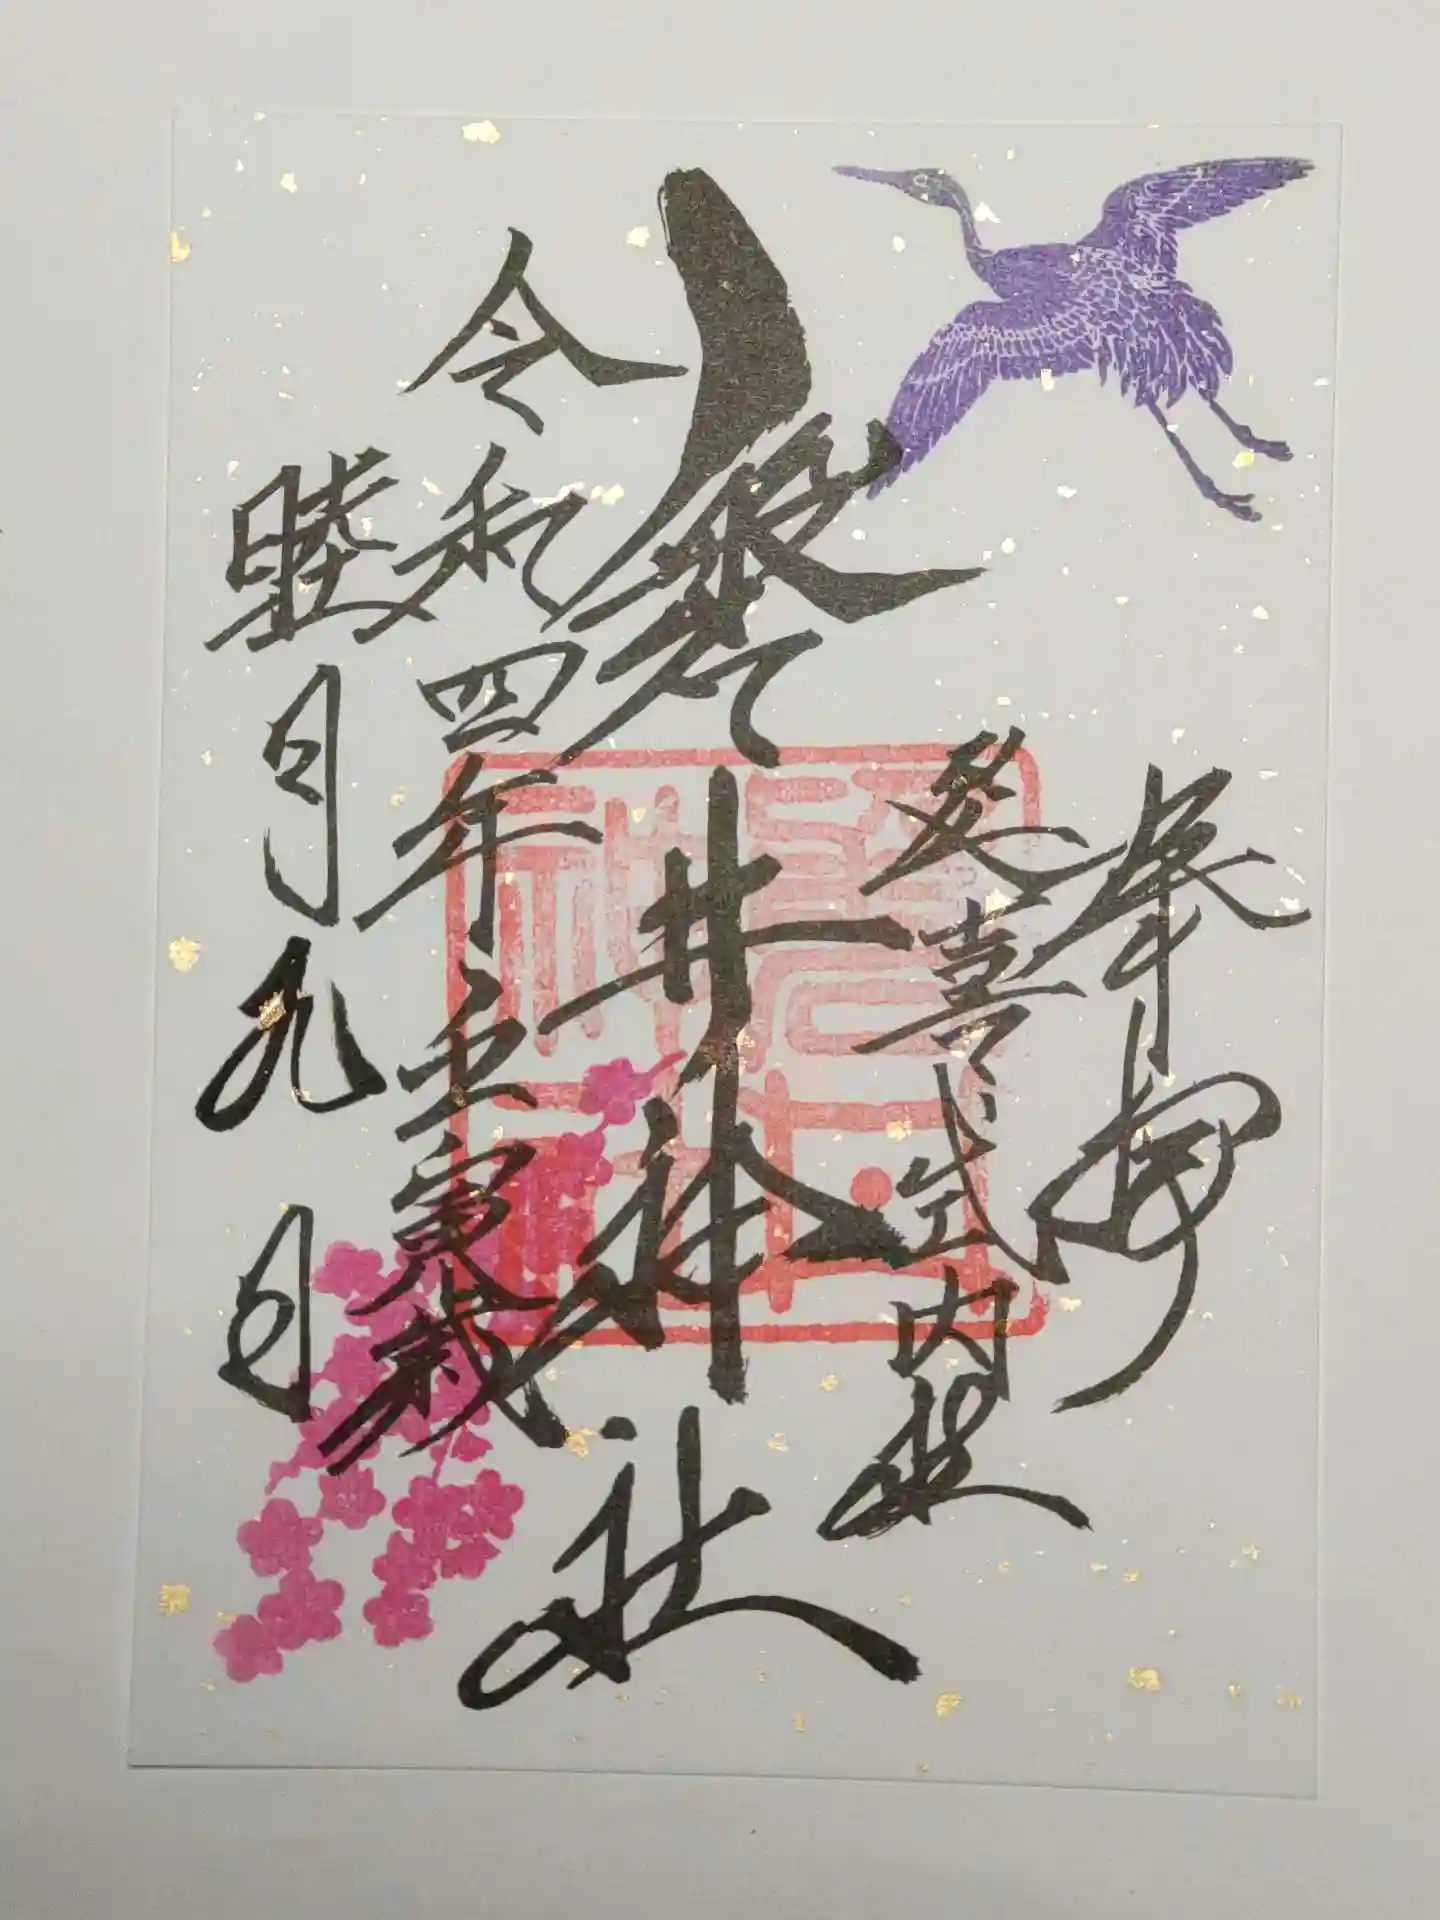 奉拝
延喜式内社
磐井神社
令和四年壬寅歳
睦月九日
磐井
神社